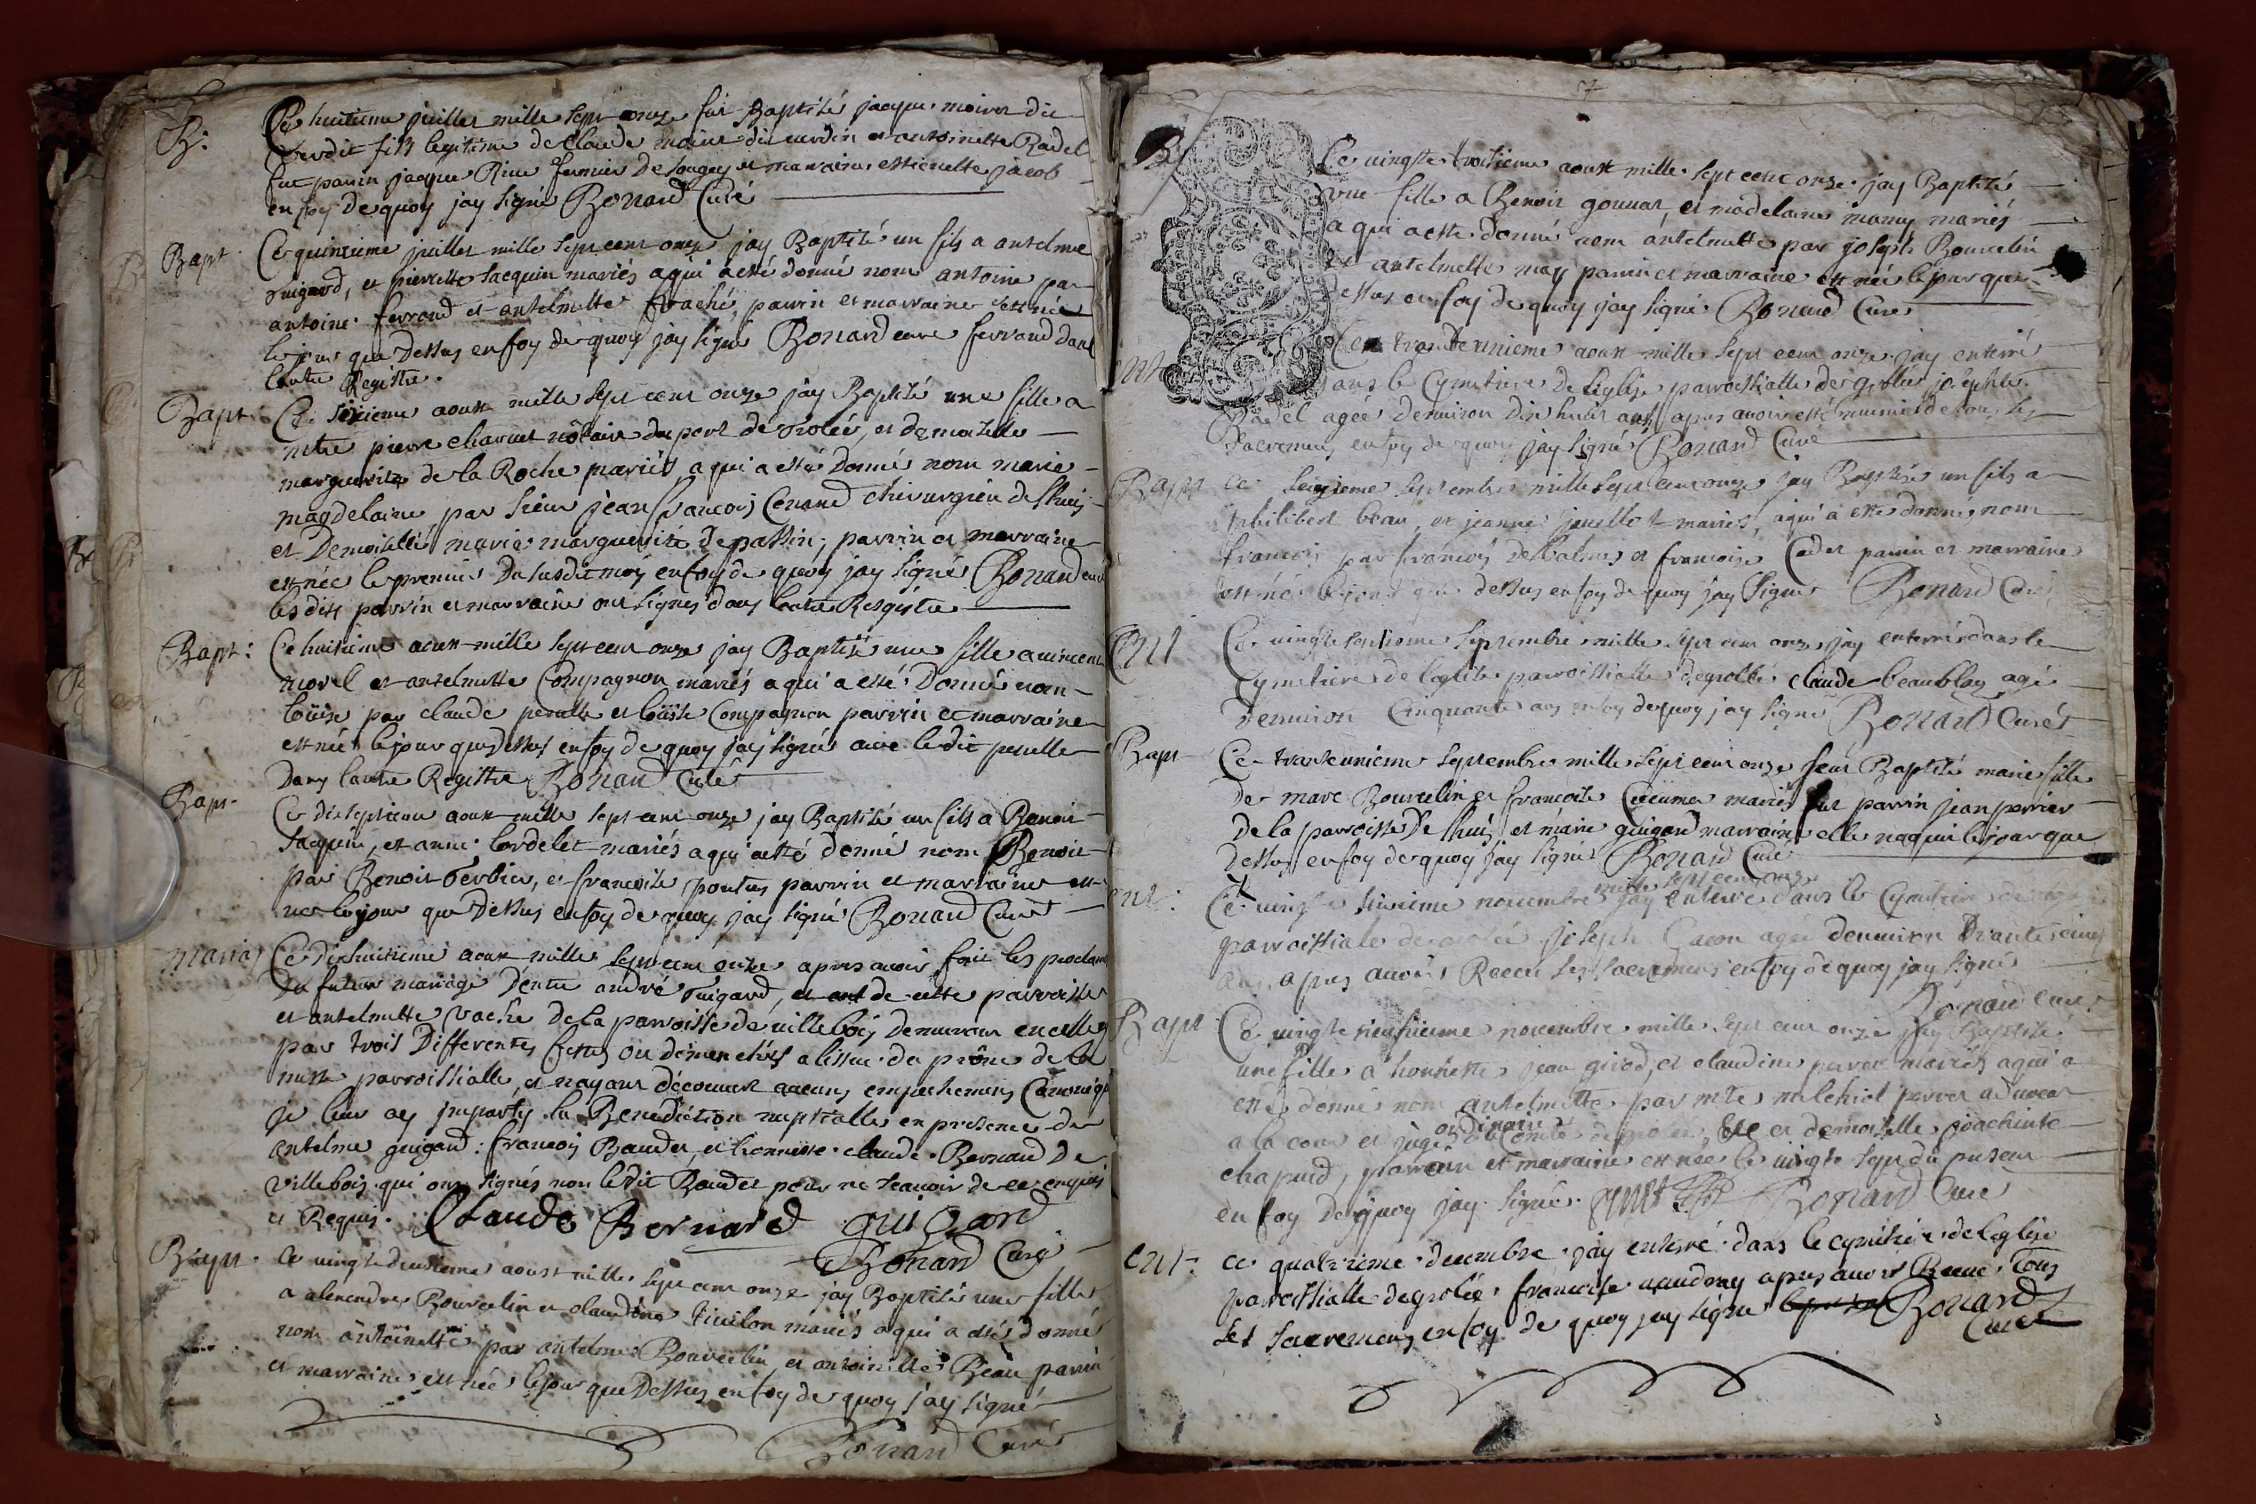 B:
Ce huitieme juillet mille sept onze fut Baptisé jacque moine dit
verdit fils legitime de Claude moine dit verdin et antoinette Radel
fut parin jacque Rive fermier de longey et marraine estienette jacob
en foy de quoy jay signé Bonard Curé
Bapt.
Ce quinzieme juillet mille sept cent onze jay Baptisé un fils a antelme
guigard, et pierrette Jacquin mariés a qui a esté donné nom antoine par
antoine ferrand et antelmette Vaché, parrin et marraine est née
le jour que dessus en foy de quoy jay signé Bonard cure ferrand dans
lautre Regittre.
Bapt.
Ce sixieme aoust mille sept cent onze jay Baptisé une fille a
mtre pierre charvet nôtaire du port de Grolée, et demoiselle
marguerite de la Roche mariés a qui a esté donné nom marie
magdelaine par sieur jean francois Cenand chirurgien de lhuis
et Demoiselle marie marguerite de passin, parrin et marraine
est née le premier du susdit moy en foy de quoy jay signé Bonard curé
lesdits parrin et marraine ont signés dans lautre Resgistre
Bapt:
Ce huitieme aoust mille sept cent onze jay Baptisé une fille a vincent
morel et antelmette Compagnon mariés a qui a esté donné nom
loüise par claude peculle et loüise Compagnon parrin et marraine
est née le jour que dessus en foy de quoy jay signé avec le dit peculle
dans lautre Registre Bonard Curé
Bapt.
Ce dix septieme aoust mille sept cent onze jay Baptisé un fils a Benoit
Jacquin, et anne Cordelet mariés a qui a esté donné nom Benoit
par Benoit Berbier, et francoise pontus parrin et marraine est
nee le jour que Dessus en foy de quoy jay signé Bonard Curé
mariag
Ce dix huitieme aoust mille sept cent onze apres avoir fait les proclam
du futur mariage dentre andré guigard, et ant de cette parroisse
et antelmette vaché de la parroisse de villebois demeurant en celle cy
par trois differentes festes ou dimenches a lissue du prône de la
messe parroissialle, et nayant découvert aucuns empechemens Canoniqu
je leur ay imparty la Benediction nuptialle en presence de
antelme guigard: francois Baudet, et honneste claude Bernard de
villebois qui ont signés non ledit Baudet pour ne scavoir de ce enquis
et Requis. Claude Bernard guigard
Bonard Curé
Bapt.
Ce vingt deuxieme aoust mille sept cent onze jay Baptisé une fille
a alexandre Bourcelin et claudine tivilon mariés a qui a esté donné
nom antoinette par antelme Bourcelin et antoinette Beau parrin
et marraine est née le jour que Dessus en foy de quoy jay signé
Bonard Curé
B
Ce vingt troisieme aoust mille sept cent onze jay Baptisé
une fille a Benoit gonnat, et madelaine mamy mariés
a qui a esté donné nom antelmette par joseph Bourcelin
et antelmette may parrin et marraine est née le jour que
dessus en foy de quoy jay signé Bonard Curé
ent
Ce trante unieme aoust mille sept cent onze jay enterré
dans le cymetiere de leglise parroissialle de grolée josephte
Radel agée denviron dix huit ans apres avoir esté munie de tous les
sacremens en foy de quoy jay signé Bonard Curé
Bapt
Ce seizieme septembre mille sept cent onze jay Baptisé un fils a
philibert beau, et jeanne jouellet mariés, a qui a esté donné nom
francois par francois de Balme et francoise Cadet parrin et marraine
est né le jour que dessus en foy de quoy jay signé Bonard Curé
Ent
Ce vingt septieme septembre mille sept cent onze jay enterré dans le
Cymetiere de leglise parroissialle de grollée claude beaublay agé
denviron Cinquante ans en foy de quoy jay signé Bonard Curé
Bapt
Ce trante unieme septembre mille sept cent onze feut Baptisé marie fille
de marc Bourcelin et francoise Cucumel mariés fut parrin jean perrier
de la parroisse de lhuis, et marie guigard marraine elle naquit le jour que
dessus en foy de quoy jay signé Bonard Curé
ent:
mille sept cent onze
Ce vingt sixieme novembre jay enterré dans le Cymetiere de
parroissiale de grolée joseph Gacon agé denviron trante cinq
ans, apres avoir Receu ses sacremens en foy de quoy jay signé
Bonard curé
Bapt
Ce vingt neufieme novembre mille sept cent onze jay Baptisé
une fille a honneste jean girod, et claudine perret mariés a qui a
esté donné nom antelmette par mtre melchiol perret advocat
ordinaire
a la cour et juge de la Comté de grolée, et demoiselle joachinte
chapuid, parrain et marraine est nee le vingt sept du present
en foy de quoy jay signé. Bonard Curé
ent.
ce quatrieme decembre jay enterré dans le cymitiere de leglise
parroissialle de grolée francoise naudray apres avoir Receu Tous
ses sacremens en foy de quoy jay signé Bonard
Curé